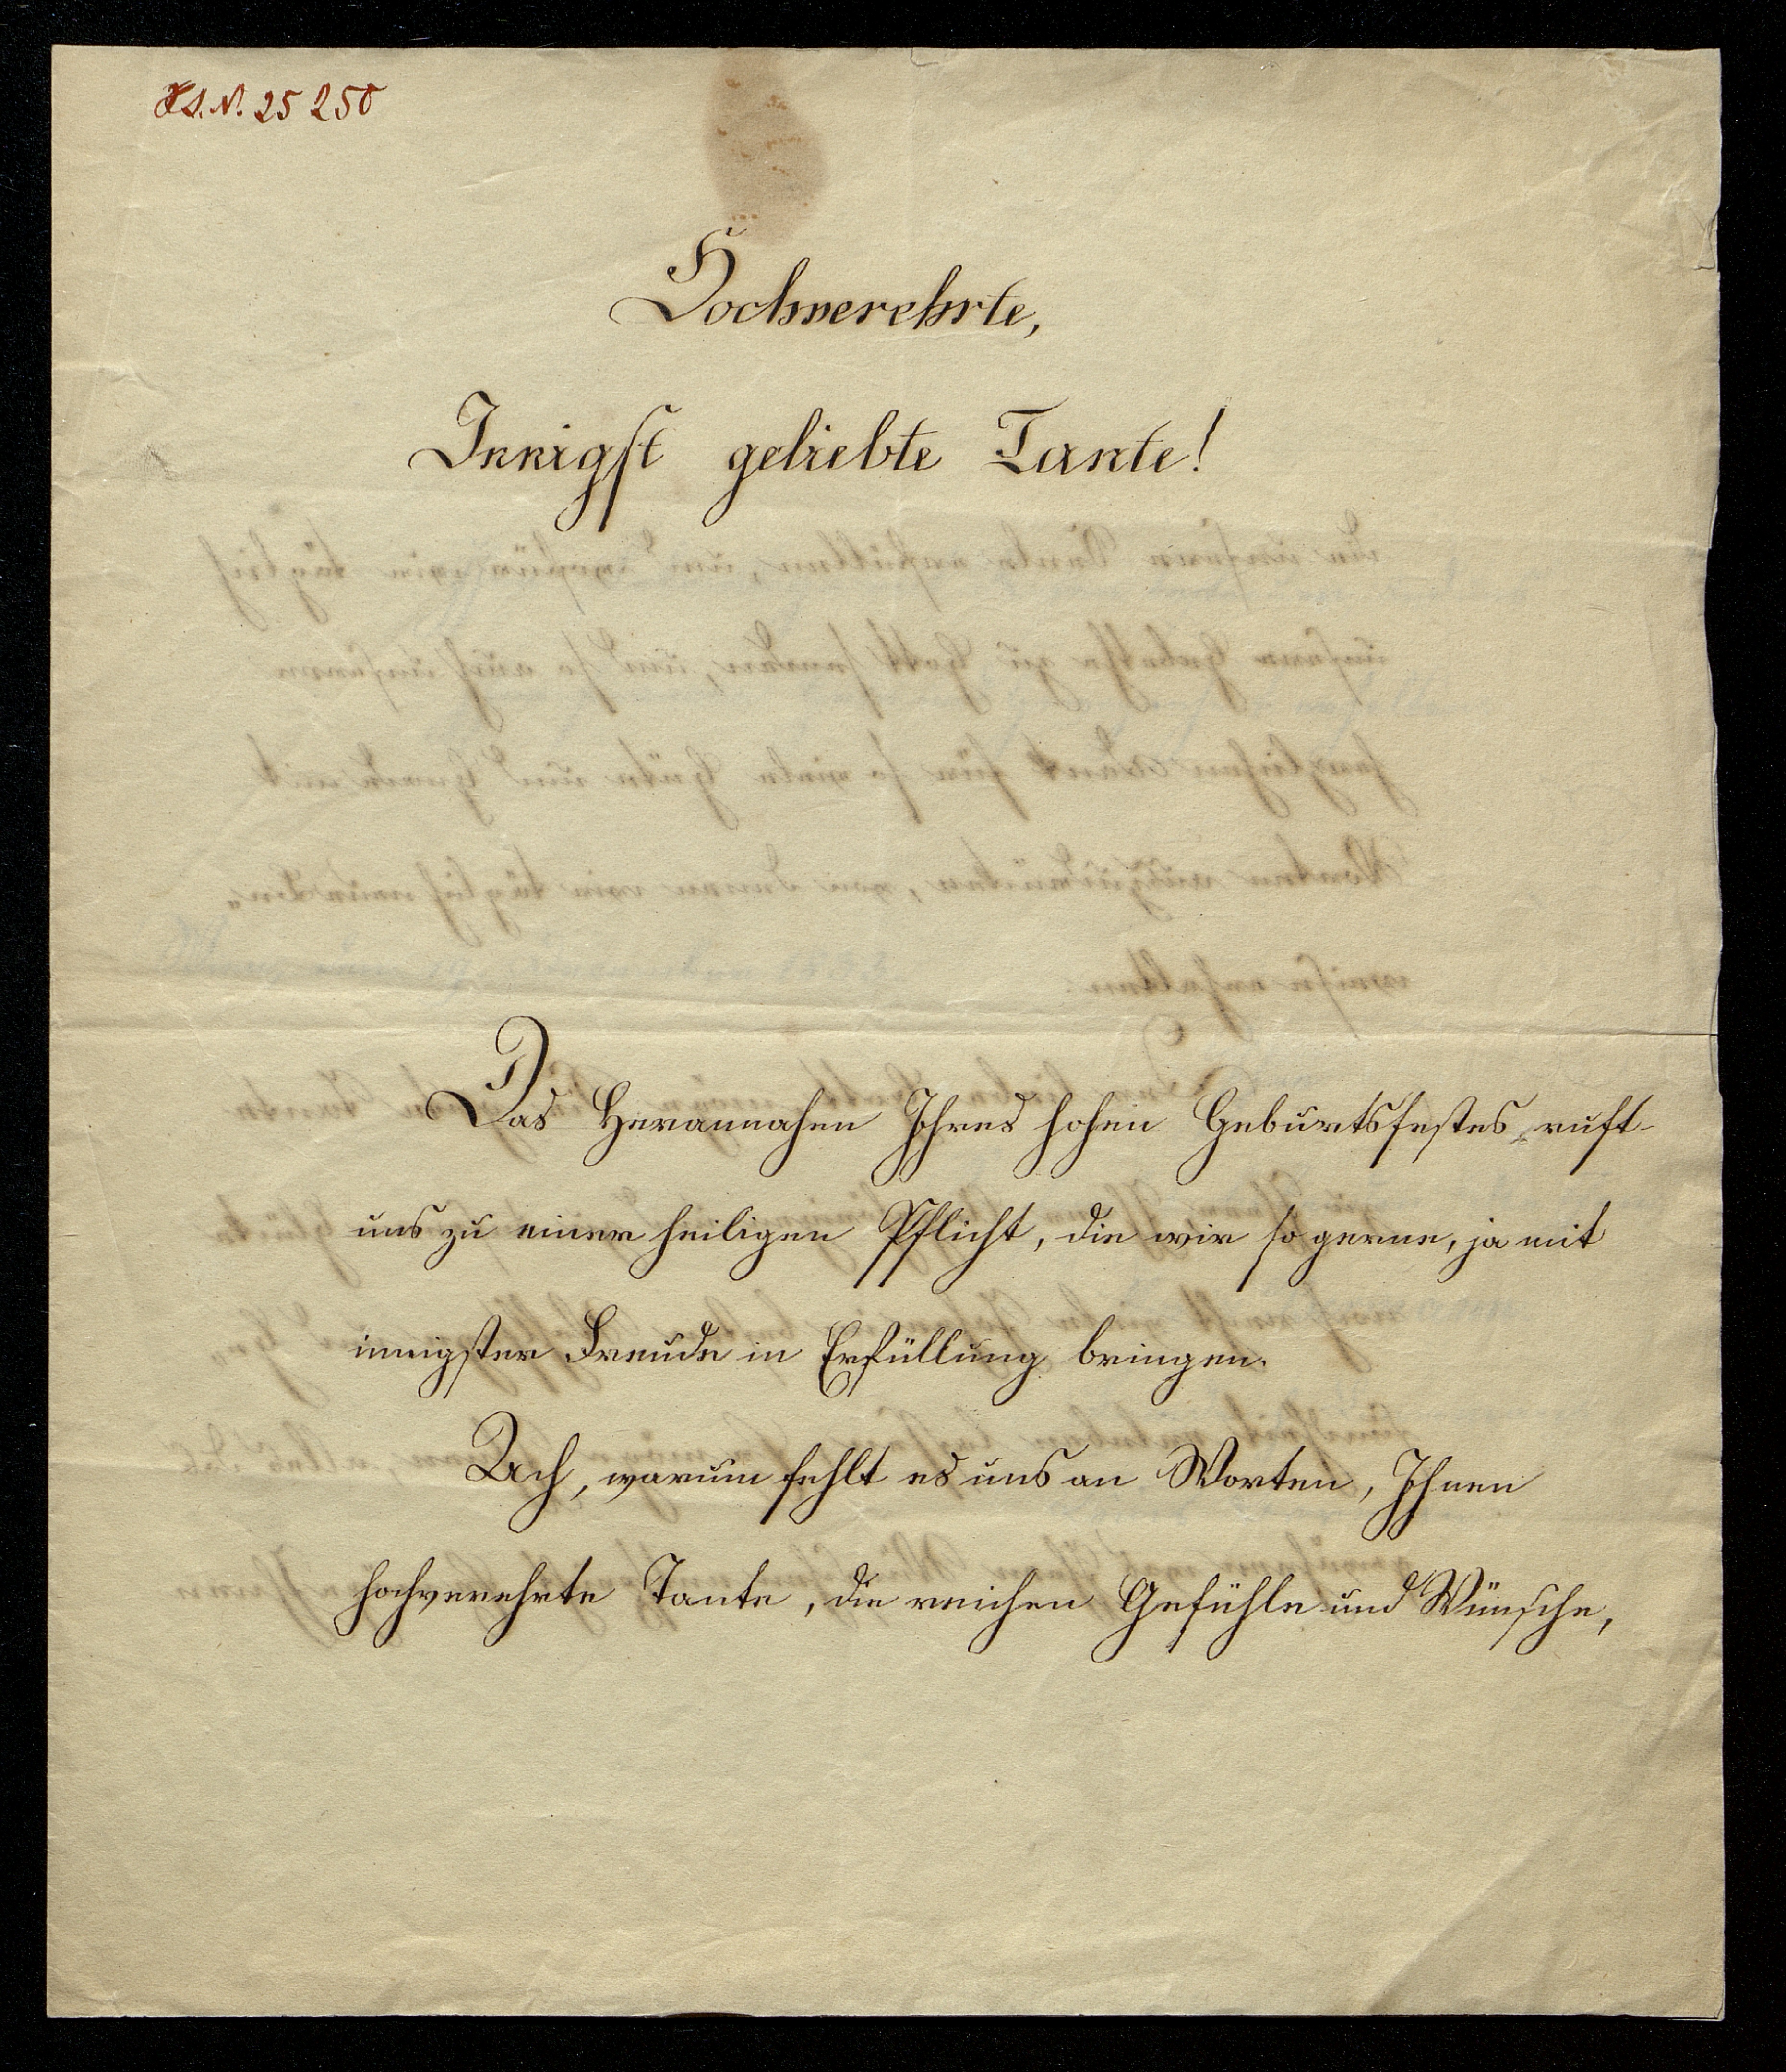 H.I.N. 25250
Hochverehrte,
Innigst geliebte Tante!
Das Herannahen Ihres hohen Geburtsfestes ruft
uns zu einer heiligen Pflicht, die wir so gerne, ja mit
innigster Freude in Erfüllung bringen.
Ach, warum fehlt es uns an Worten, Ihnen
hochverehrte Tante, die reichen Gefühle und Wünsche,